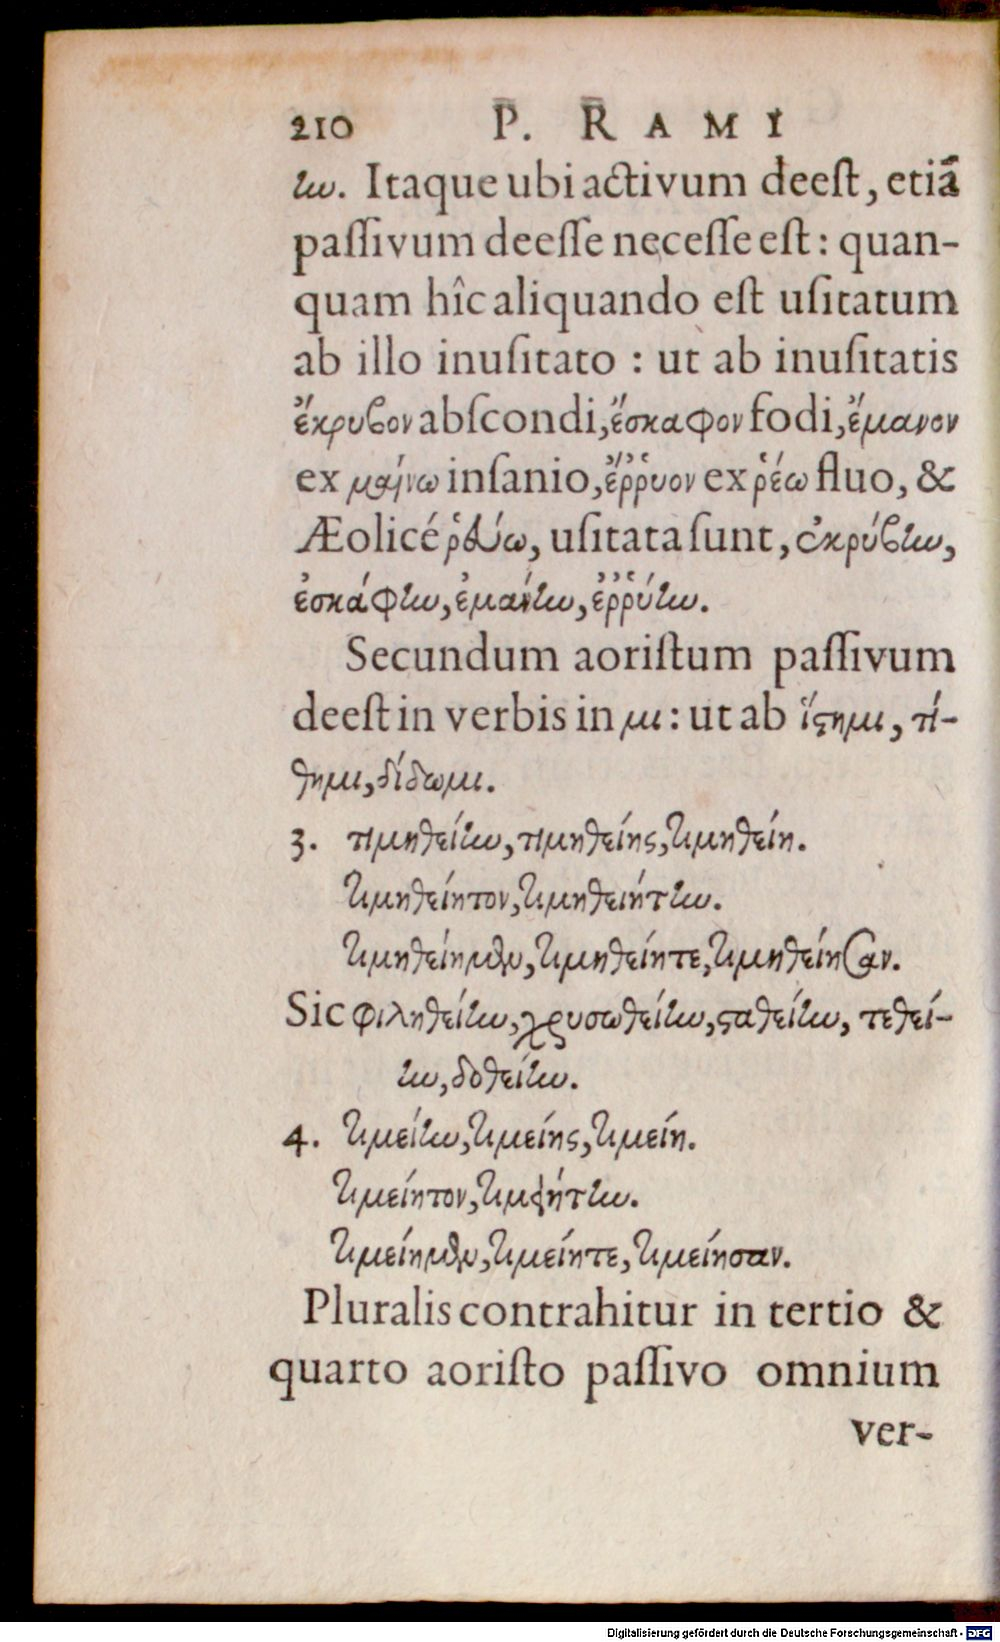 210 P. RAMI
ην. Itaque ubi activum deeſt, etiã
paſſivum deeſſe neceſſe eſt: quan-
quam hîc aliquando eſt uſitatum
ab illo inuſitato : ut ab inuſitatis
ἔκρυϐον abſcondi, ἔσκαφον fodi, ἔμανον
ex μαίνω inſanio, ἔῤῥυον ex ῥέω fluo, &
Æolicé ῥδύω, uſitata ſunt, ἐκρύϐην,
ἐσκάφην, ἐμάνην, ἐῤῥύην.
Secundum aoriſtum paſſivum
deeſt in verbis in μι: ut ab ἵϛημι, τί-
θημι, δίδωμι.
3. τιμηθείην, τιμηθείης, τιμηθείη.
τιμηθείητον, τιμηθειήτην.
τιμηθείημεν, τιμηθείητε, τιμηθείησαν.
Sic φιληθείην, χρυσωθείην, ϛαθείην, τεθεί-
ην, δοθείην.
4. τιμείην, τιμείης, τιμείη.
τιμείητον, τιμειήτην.
τιμείημεν, τιμείητε, τιμείησαν.
Pluralis contrahitur in tertio &
quarto aoriſto paſſivo omnium
ver-
Digitalisierung gefördert durch die Deutsche Forschungsgemeinschaft - DFG